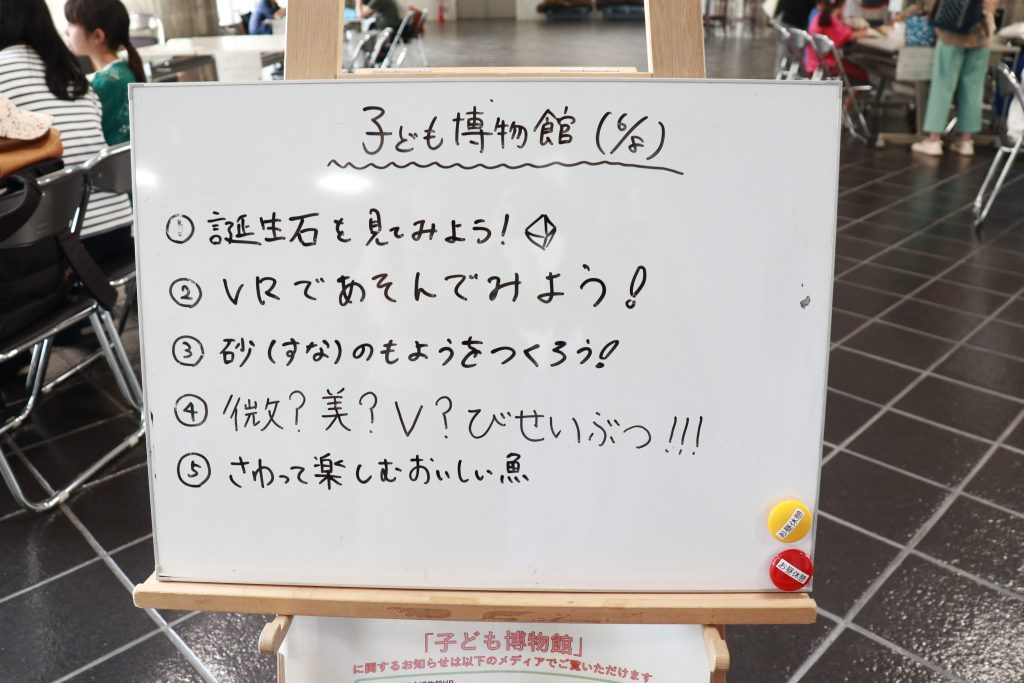 子ども博物館(6/8)
① 誕生石を見てみよう!
② VRであそんでみよう!
③ 砂(すな)のもようをつくろう!
④ 微?美?V?びせいぶつ!!!
⑤ さわって楽しむおいしい魚
お昼休憩
お昼休憩
「子ども博物館」
に関するお知らせは以下のメディアでご覧いただけます